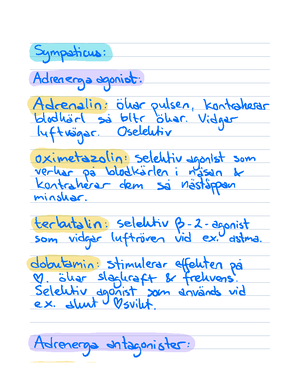 Sympaticus:
Adrenerga agonist:
Adrenalin: ökar pulsen, kontraherar
blodkärl så bltr ökar. Vidgar
luftvägar. Oselektiv
oximetazolin: selektiv agonist som
verkar på blodkärlen i näsan &
kontraherar dem så nästäppan
minskar.
terbutalin: selektiv β-2-agonist
som vidgar luftrören vid ex. astma.
dobutamin: stimulerar effekten på
♡. ökar slagkraft & frekvens.
Selektiv agonist som används vid
ex. akut ♡svikt.
Adrenerga antagonister: